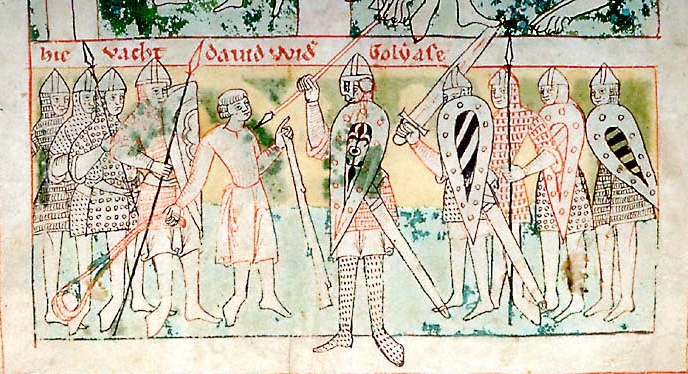 hie vacht dauid wid Golyase